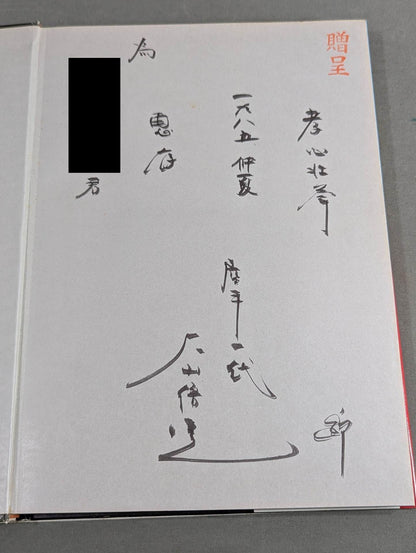 贈呈
孝心壮挙
一九八五 仲夏
唐手一代
大山倍達
恵存
為
君